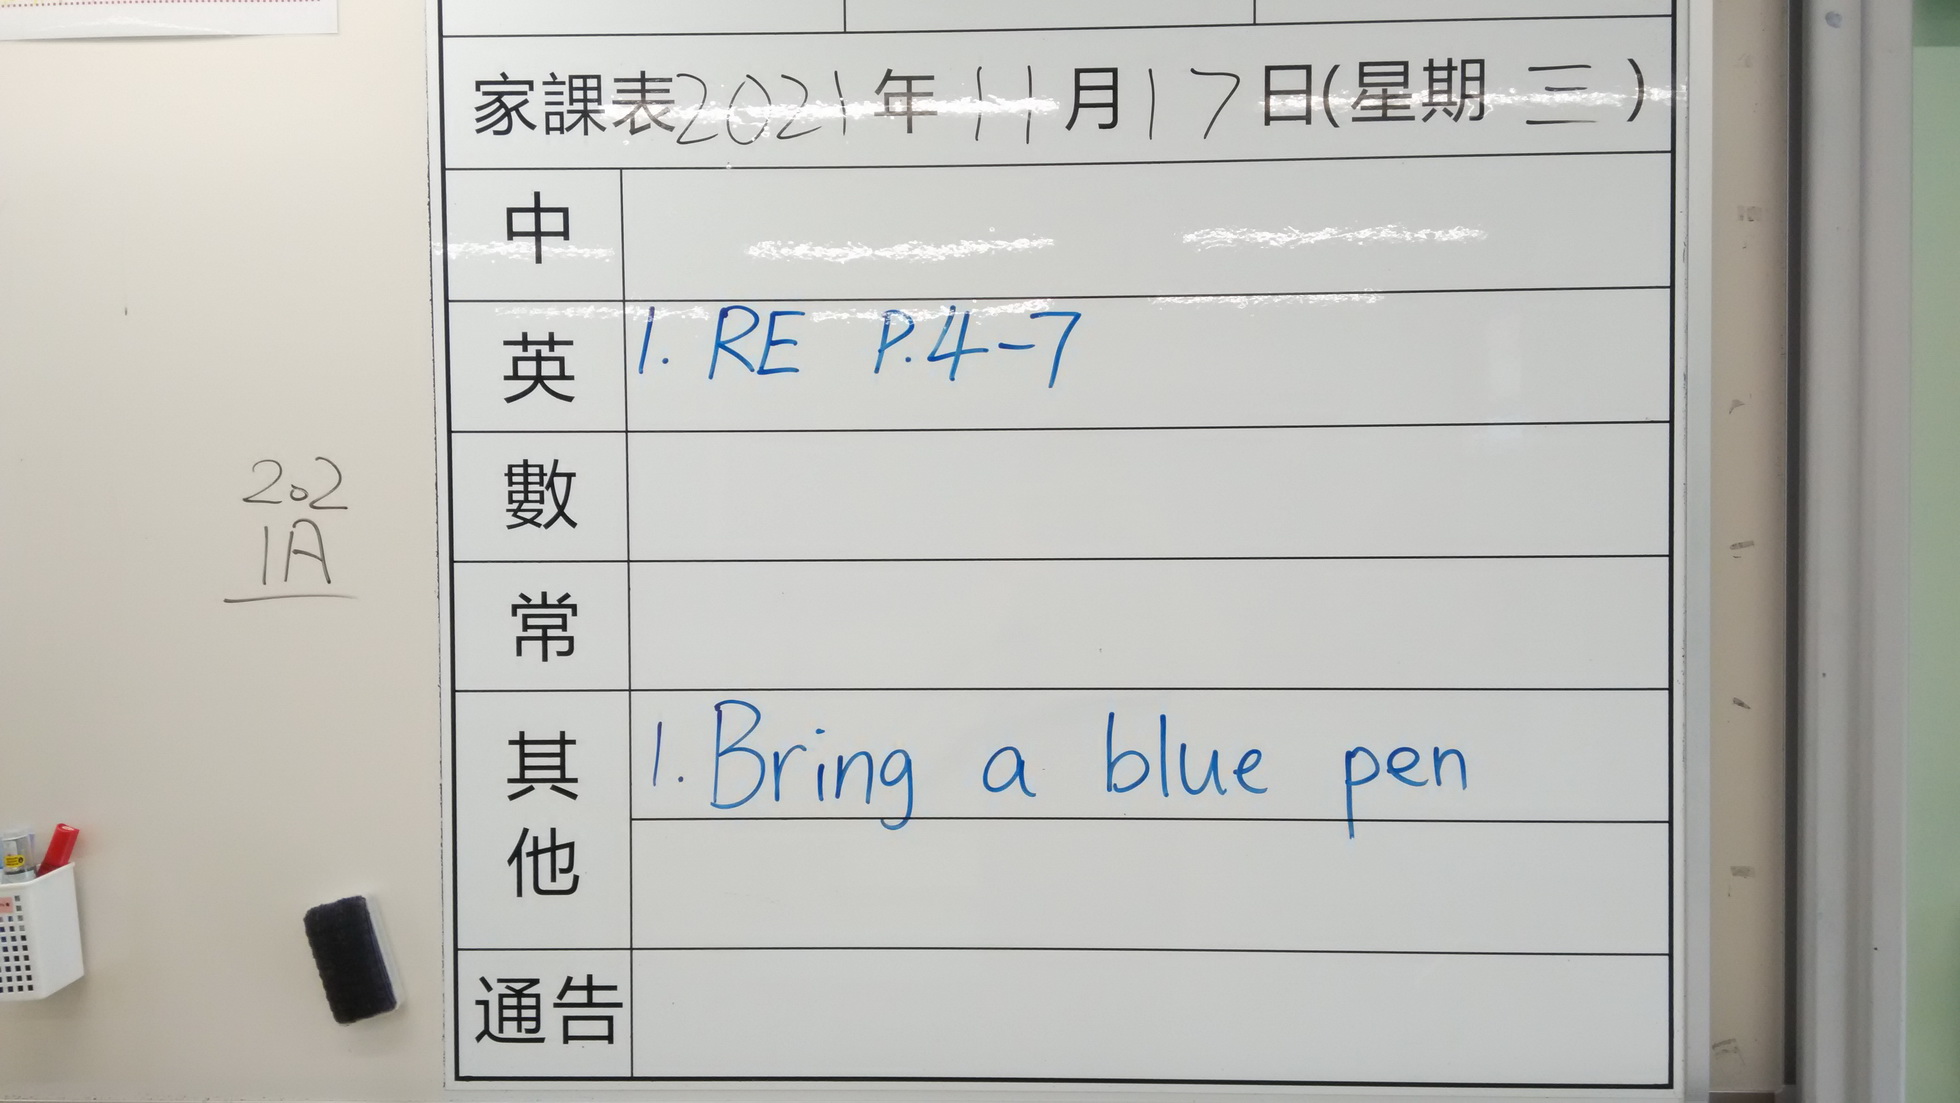 家課表2021年11月17日(星期三)
中
英
1. RE P.4-7
數
202
1A
常
其他
1. Bring a blue pen
通告